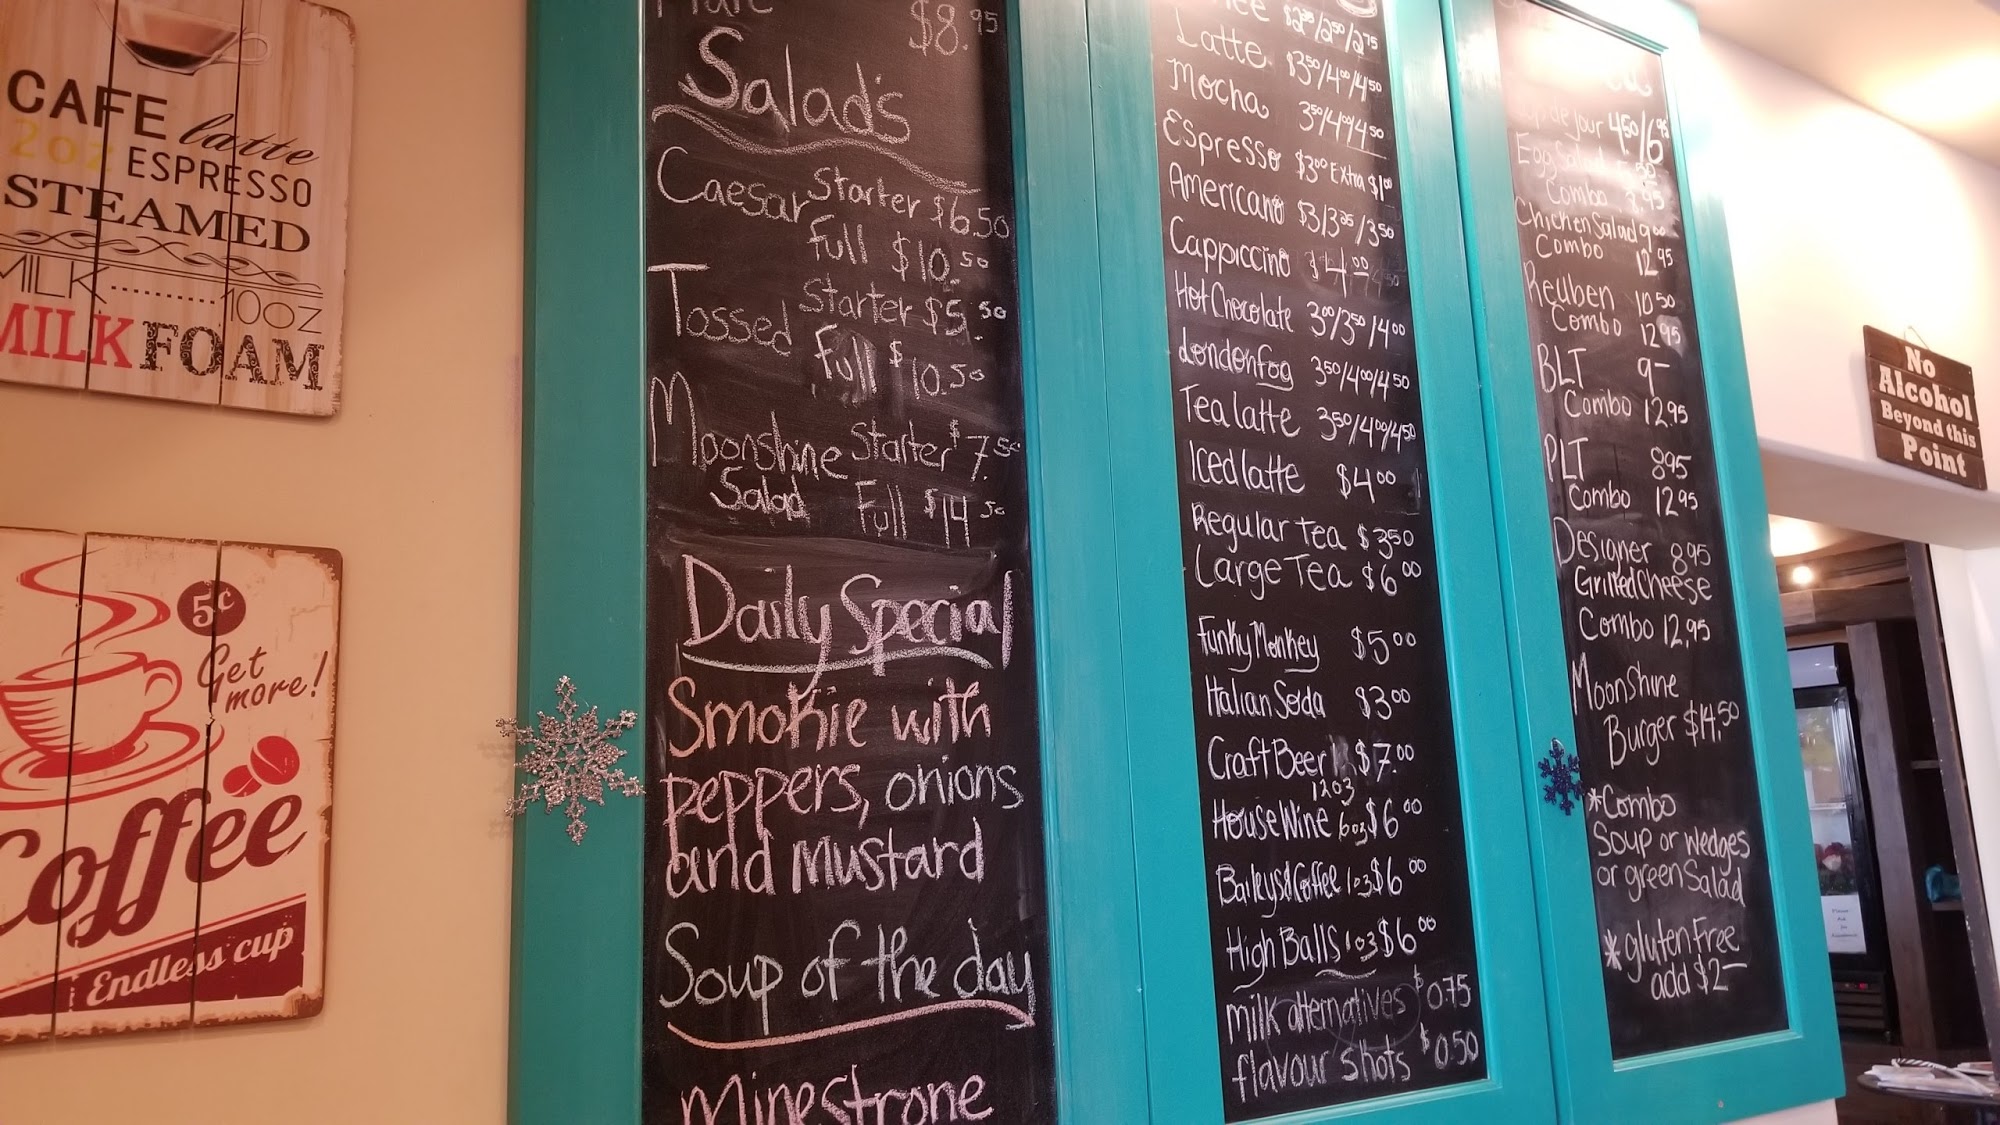 CAFE latte
2oz ESPRESSO
STEAMED
MILK ........... 10OZ
MILK FOAM
5¢
Get
more!
Coffee
Endless cup
$8.95
Salad's
Caesar Starter $6.50
Full $10.50
Tossed Starter $5.50
Full $10.50
Moonshine Starter $7.50
Salad Full $14.50
Daily Special
Smokie with
peppers, onions
and mustard
Soup of the day
Minestrone
Latte $3.50/4.00/4.50
Mocha 3.50/4.00/4.50
Espresso $3.00 Extra $1.00
Americano $3/3.25/3.50
Cappiccino $4.00
Hot Chocolate 3.00/3.50/4.00
London Fog 3.50/4.00/4.50
Tea latte 3.50/4.00/4.50
Iced latte $4.00
Regular Tea $3.50
Large Tea $6.00
Funky Monkey $5.00
Italian Soda $3.00
Craft Beer $7.00
12oz
House Wine 6oz $6.00
Baileys & Coffee 1oz $6.00
High Balls 1oz $6.00
milk alternatives $0.75
flavour shots $0.50
de jour 4.50/6.95
Egg Salad
Combo
Chicken Salad 9.00
Combo 12.95
Reuben 10.50
Combo 12.95
BLT 9-
Combo 12.95
PLT 8.95
Combo 12.95
Designer 8.95
Grilled Cheese
Combo 12.95
Moonshine
Burger $14.50
*Combo
Soup or wedges
or green Salad
*gluten Free
add $2-
No
Alcohol
Beyond this
Point